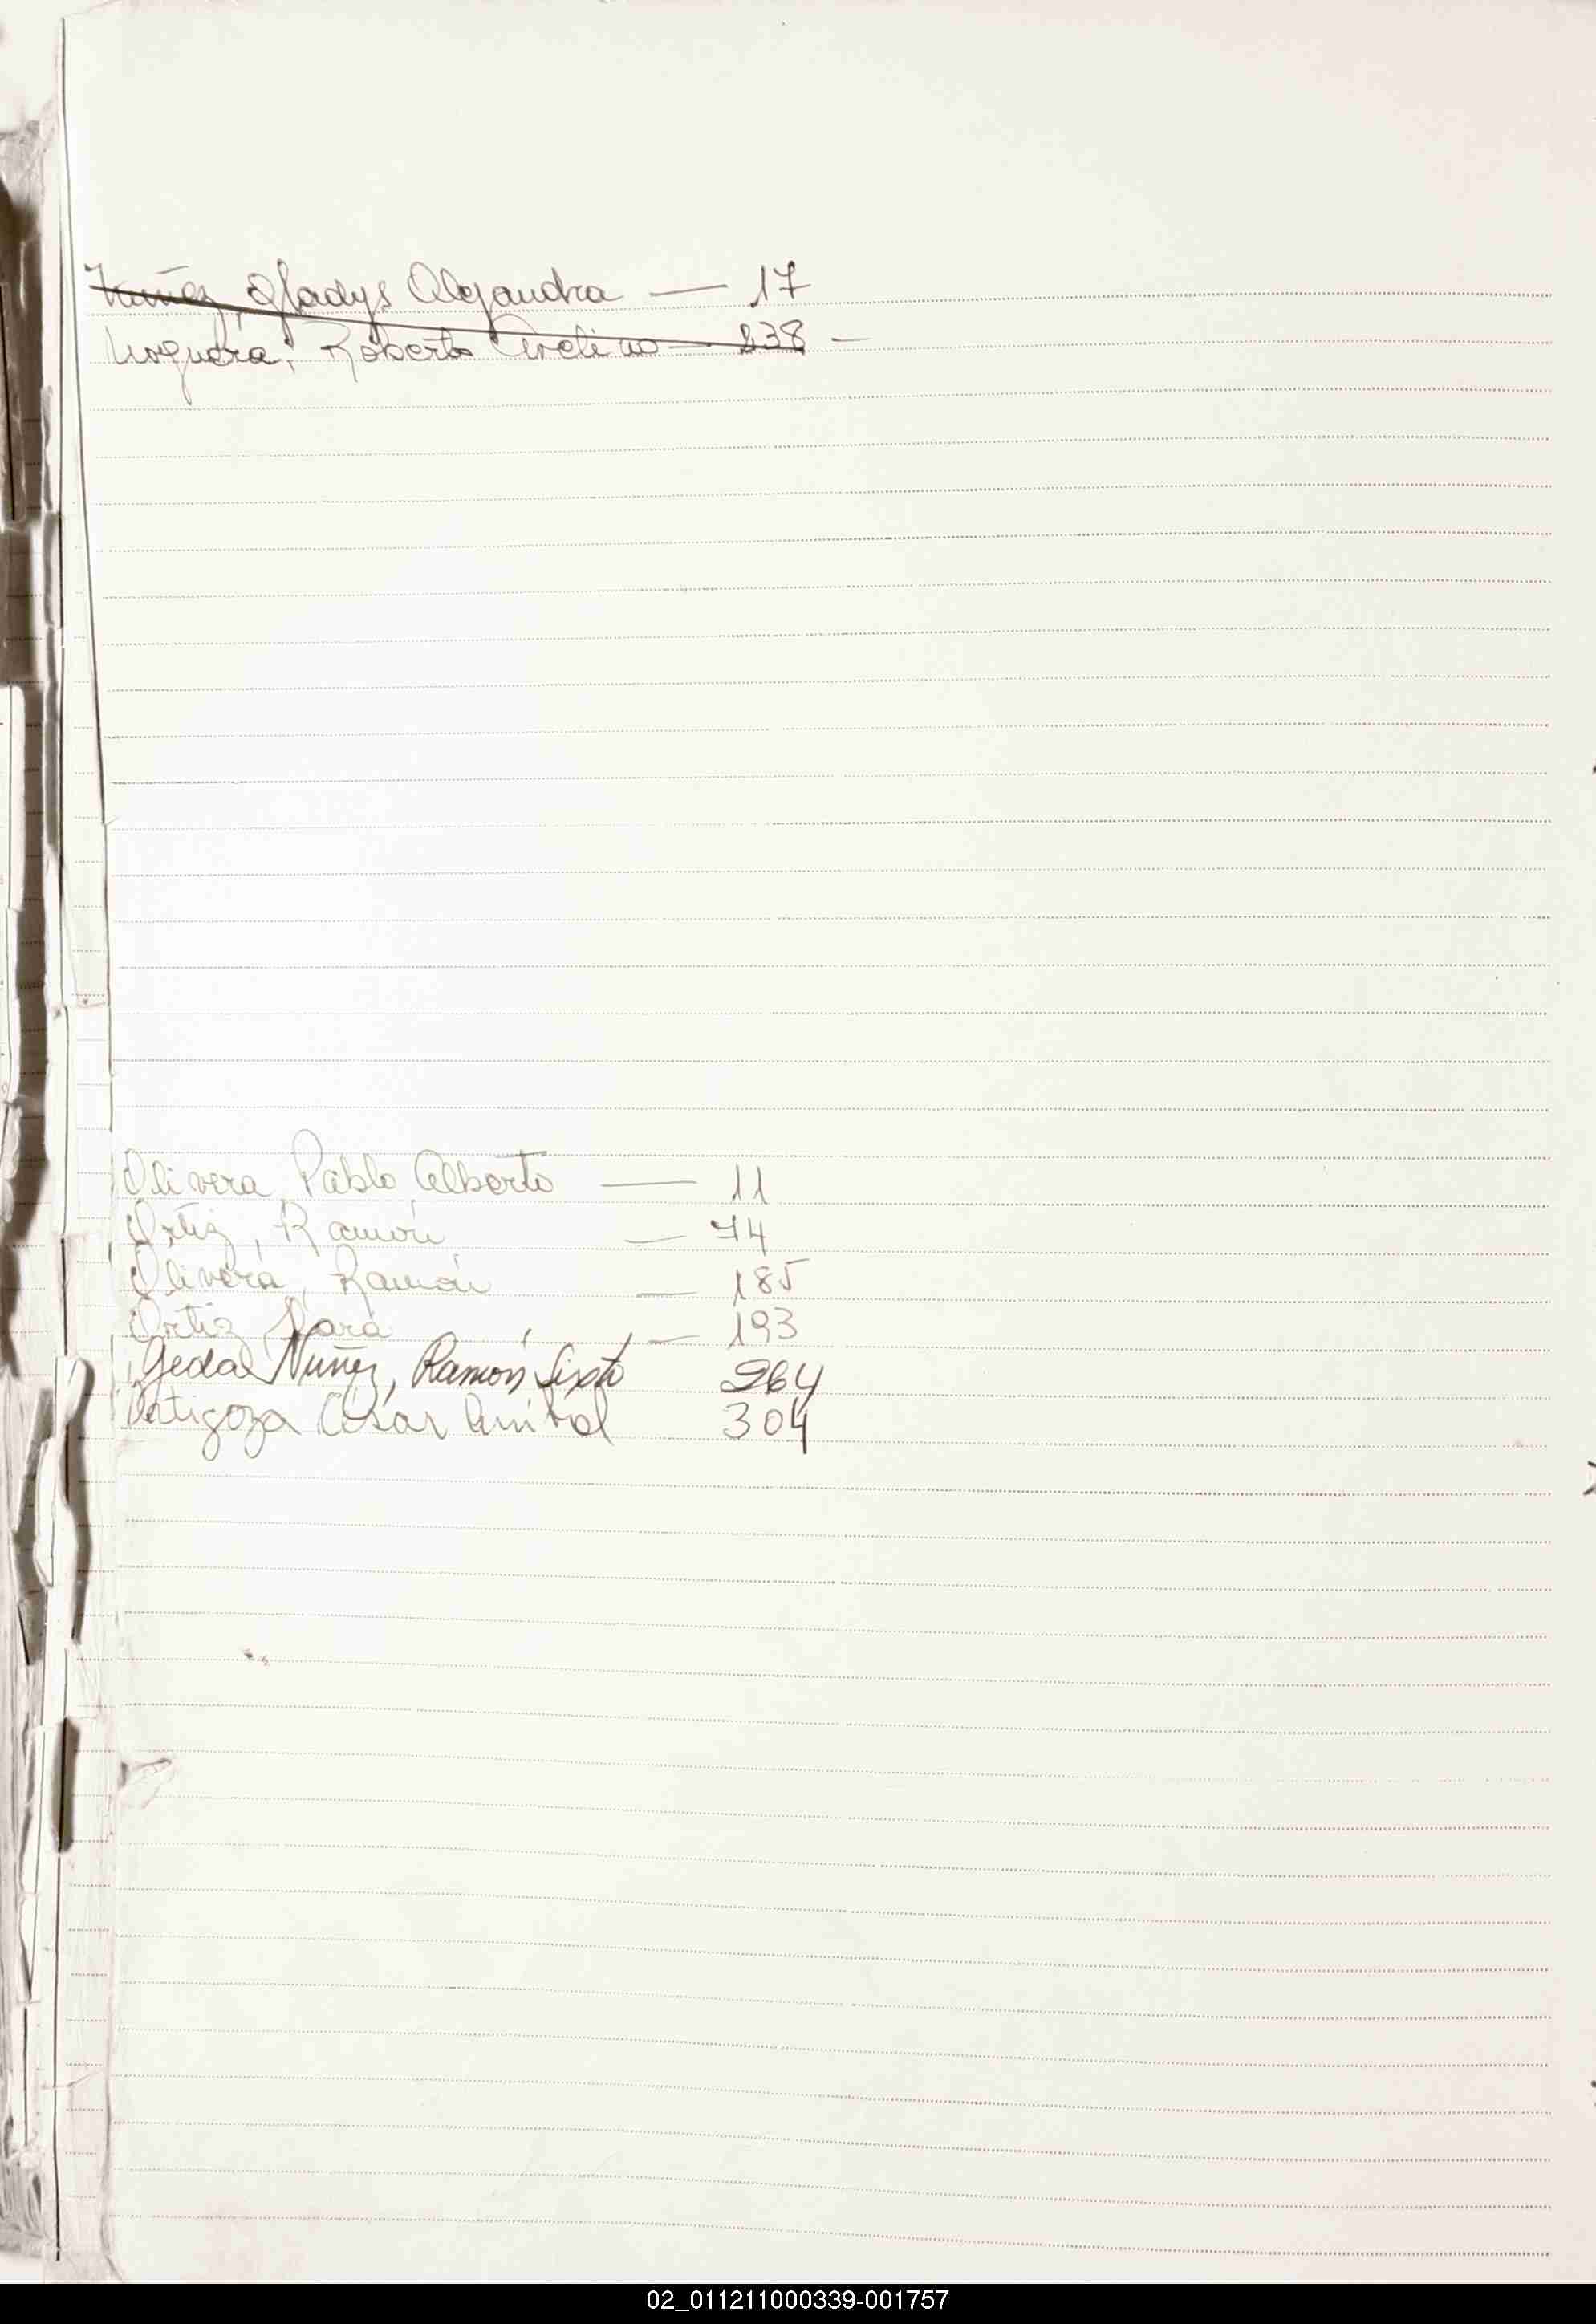 Nuñez, Gladys Alejandra — 17
Noguera, Roberto Avelino — 238 —
Olivera, Pablo Alberto — 11
Ortiz, Ramón — 74
Olivera, Ramón — 185
Ortiz Sara — 193
Ojeda Nuñez, Ramón Sixto 264
Ortigoza César Anibal 304
02_011211000339-001757